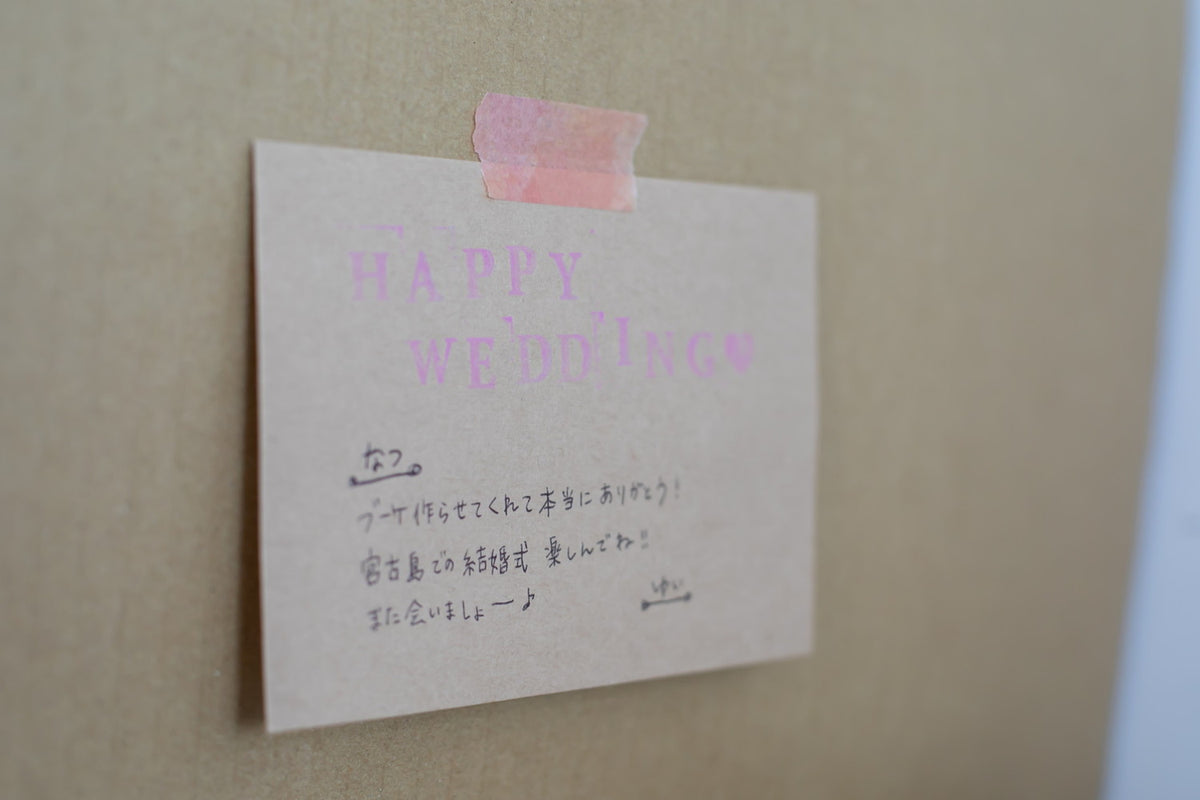 HAPPY
WEDDING♥
なつ
ブーケ作らせてくれて本当にありがとう!
宮古島での結婚式 楽しんでね!!
また会いましょー♪
ゆい